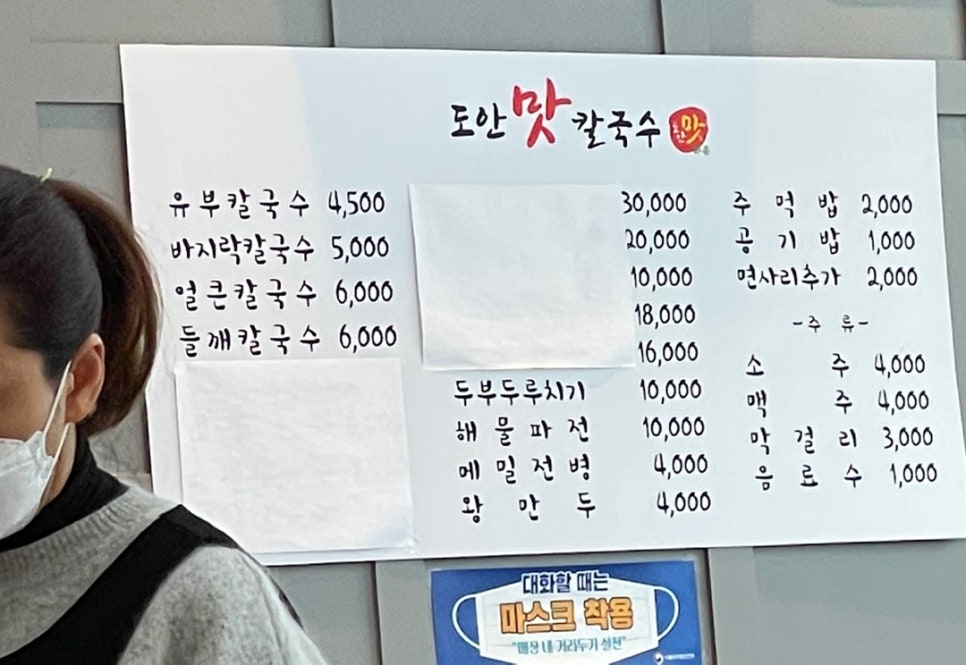 도안맛칼국수
유부칼국수 4,500
바지락칼국수 5,000
얼큰칼국수 6,000
들깨칼국수 6,000
30,000
20,000
10,000
18,000
16,000
두부두루치기 10,000
해물파전 10,000
메밀전병 4,000
왕만두 4,000
주먹밥 2,000
공기밥 1,000
면사리추가 2,000
-주류-
소주 4,000
맥주 4,000
막걸리 3,000
음료수 1,000
대화할 때는
마스크 착용
"매장 내 거리두기 실천"